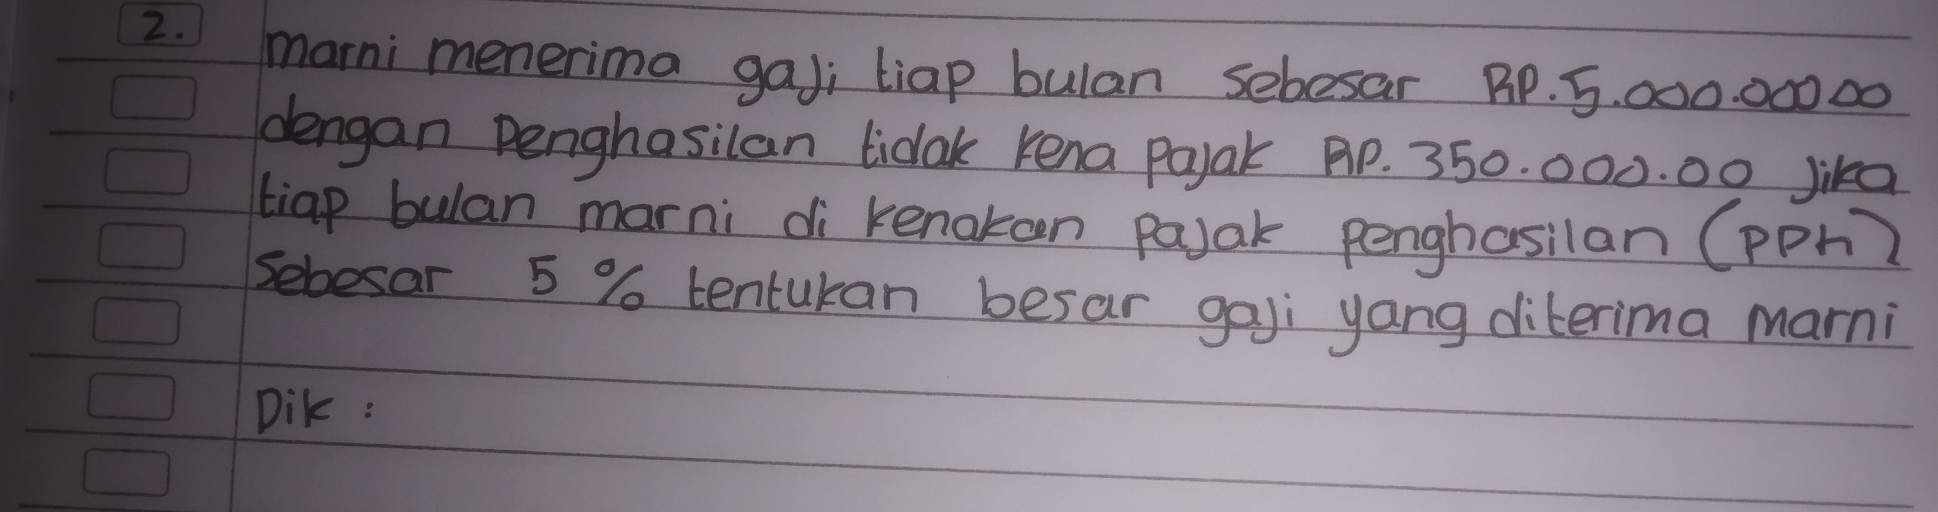 2. marni menerima gaji tiap bulan sebesar RP. 5.000.000 00
dengan penghasilan tidak kena pajak RP. 350.000.00 jika
tiap bulan marni di kenakan pajak penghasilan (PPh)
sebesar 5 % tentukan besar gaji yang diterima marni
Dik :